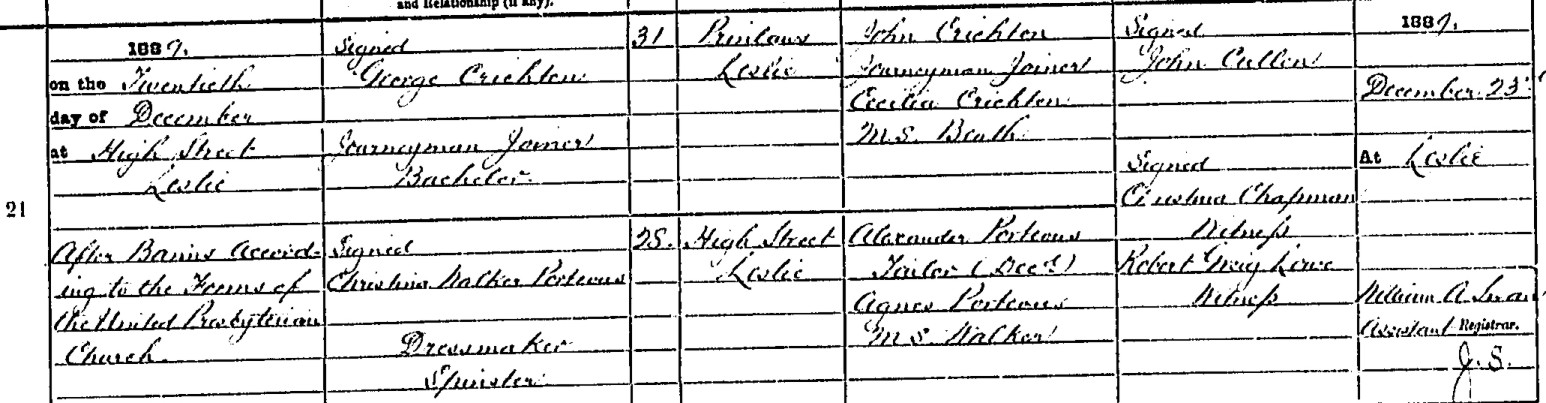 and Relationship (if any).
21
1887.
on the Twentieth
day of December
at High Street
Leslie
After Banns Accord-
ing to the Forms of
the United Presbyterian
Church.
Signed
George Crichton
Journeyman Joiner
Bachelor
Signed
Christina Walker Porteous
Dressmaker
Spinster
31
25.
Prinlaws
Leslie
High Street
Leslie
John Crichton
Journeyman Joiner
Cecilia Crichton
M.S. Beath
Alexander Porteous
Tailor (Decd)
Agnes Porteous
M.S. Walker
Signed
John Cullen
Signed
Chapman
Witness
Robert Greig Lowe
Witness
1887.
December 23rd
At Leslie
William A. Swan
Assistant Registrar.
J. S.